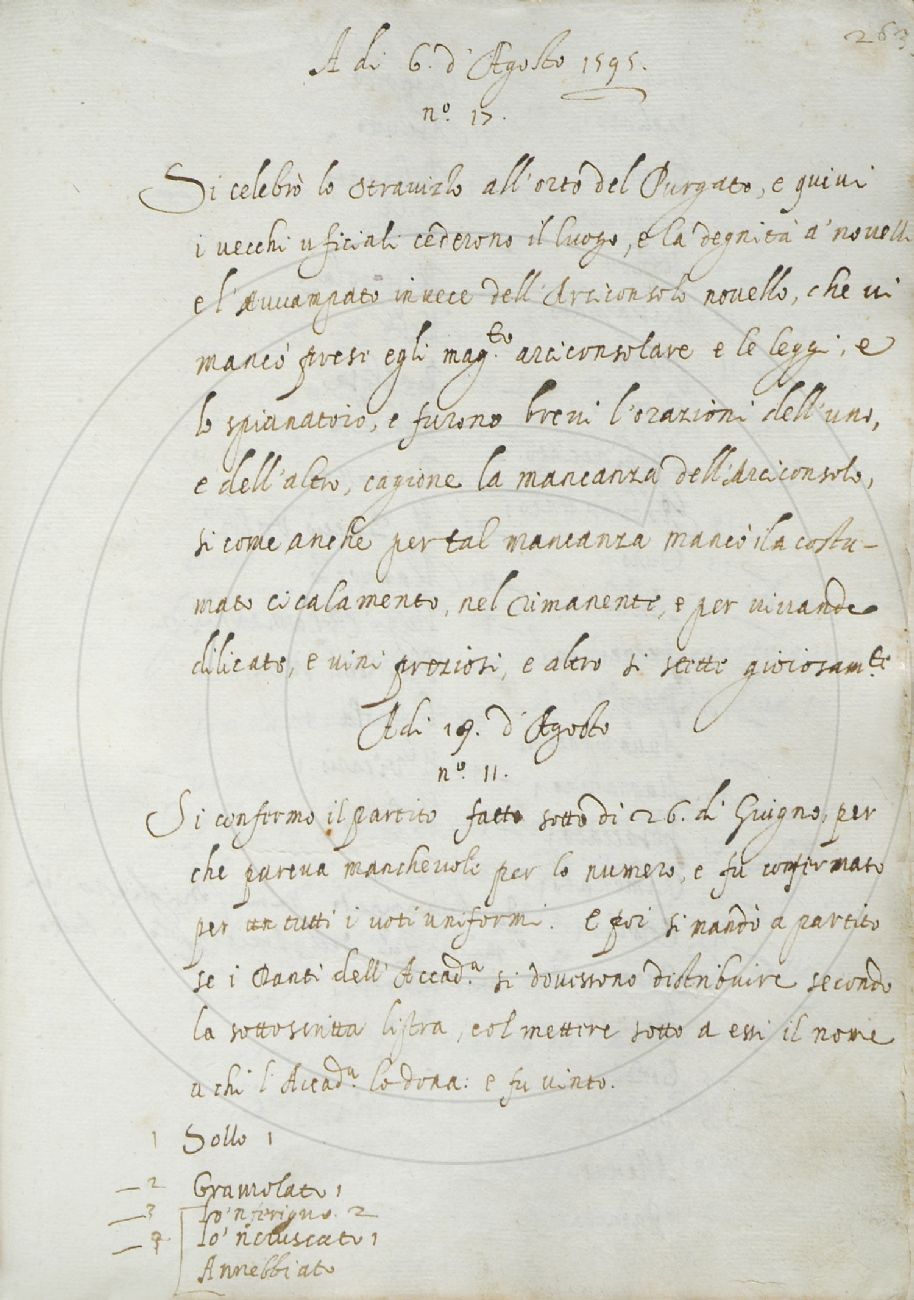 263
A di 6. d'Agosto 1595.
n.º 17.
Si celebrò lo stravizio all'orto del Purgato, e quivi
i vecchi uficiali cederono il luogo, e la degnità a' novelli
e l'Avvampato invece dell'Arciconsolo novello, che vi
mancò prese egli mag.to arciconsolare e le leggi, e
lo spianatoio, e furono brevi l'orazioni dell'uno,
e dell'altro, cagione la mancanza dell'Arciconsolo,
si come anche per tal mancanza mancò il acostu-
mato cicalamento, nel rimanente, e per vivande
dilicate, e vini preziosi, e altro si stette gioiosam.te
Adi 19. d'Agosto
n.º 11.
Si confermo il partito fatto sotto di 26. di Giugno, per
che pareva manchevole per lo numero, e fu confermato
per tutti i voti uniformi. E poi si mandò a partito
se i Danti dell'Accad.a si dovessono distribuire secondo
la sottoscritta listra, col mettere sotto a essi il nome
a chi l'Accad.a lo dona: e fu vinto.
1 Sollo 1
2 Gramolato 1
3 Lo'nferigno 2
Lo'ncruscato 1
Annebbiato